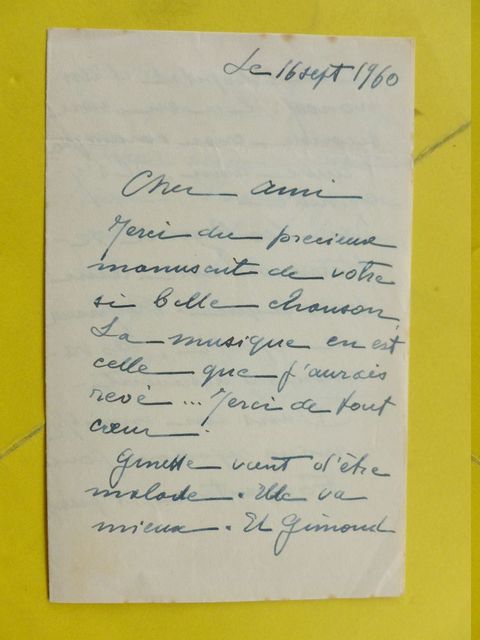 Le 16 sept 1960
Cher ami
Merci du precieux
manuscrit de votre
si belle chanson
La musique en est
celle que j'aurais
revé ... Merci de tout
cœur.
Ginette vient d'être
malade. Elle va
mieux. Et Gimond